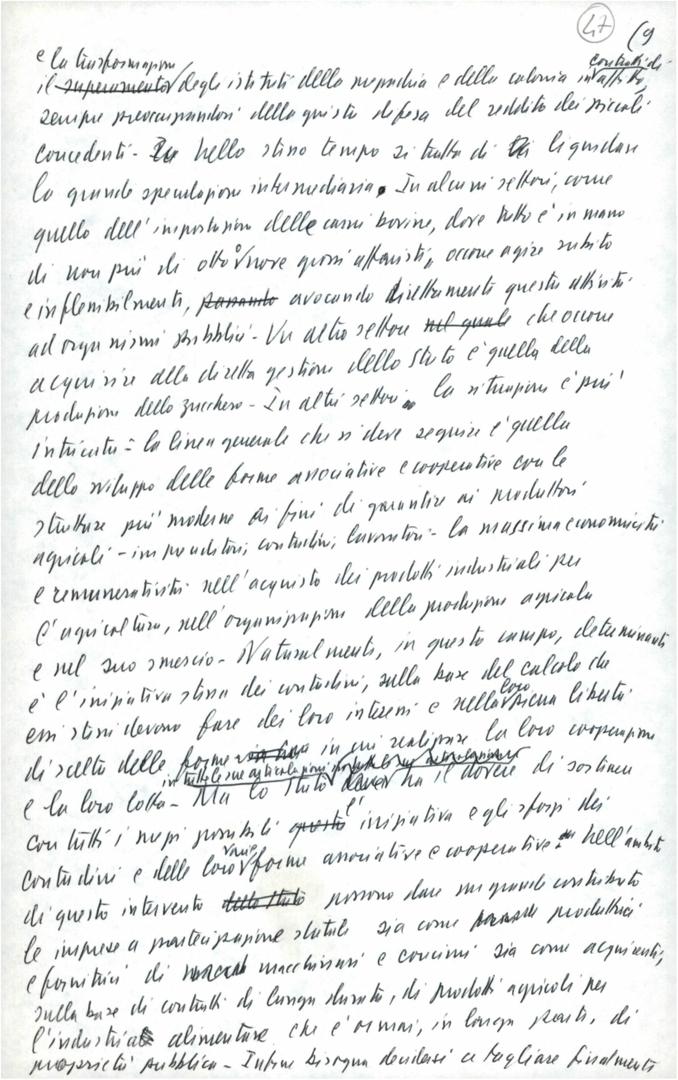 47
(9
e la trasformazione
contratti di
il superamento degli istituti della mezzadria e della colonia in affitto,
sempre preoccupandosi della giusta difesa del reddito dei piccoli
concedenti - Nello stesso tempo si tratta di liquidare
la grande speculazione intermediaria. In alcuni settori, come
quello dell'importazione delle carni bovine, dove tutto è in mano
di non più di otto o nove grossi affaristi, occorre agire subito
e inflessibilmente, passando avocando direttamente questa attività
ad organismi pubblici - Un altro settore nel quale che occorre
acquisire alla diretta gestione dello Stato è quella della
produzione dello zucchero - In altri settori la situazione è più
intricata: la linea generale che si deve seguire è quella
dello sviluppo delle forme associative e cooperative con le
strutture più moderne ai fini di garantire ai produttori
agricoli - imprenditori, contadini, lavoratori - la massima economicità
e remuneratività nell'acquisto dei prodotti industriali per
l'agricoltura, nell'organizzazione della produzione agricola
e nel suo smercio - Naturalmente, in questo campo, determinante
è l'iniziativa stessa dei contadini, sulla base del calcolo che
essi stessi devono fare dei loro interessi e nella loro piena libertà
di scelta delle forme in cui realizzare la loro cooperazione
in tutte le sue articolazioni
e la loro lotta - Ma lo Stato ha il dovere di sostenere
con tutti i mezzi possibili questa l'iniziativa e gli sforzi dei
contadini e delle loro varie forme associative e cooperative - Nell'ambito
di questo intervento dello Stato possono dare un grande contributo
le imprese a partecipazione statale sia come produttrici
e fornitrici di macchinari e concimi sia come acquirenti,
sulla base di contratti di lunga durata, di prodotti agricoli per
l'industria alimentare che è ormai, in larga parte, di
proprietà pubblica - Infine bisogna decidersi a tagliare finalmente